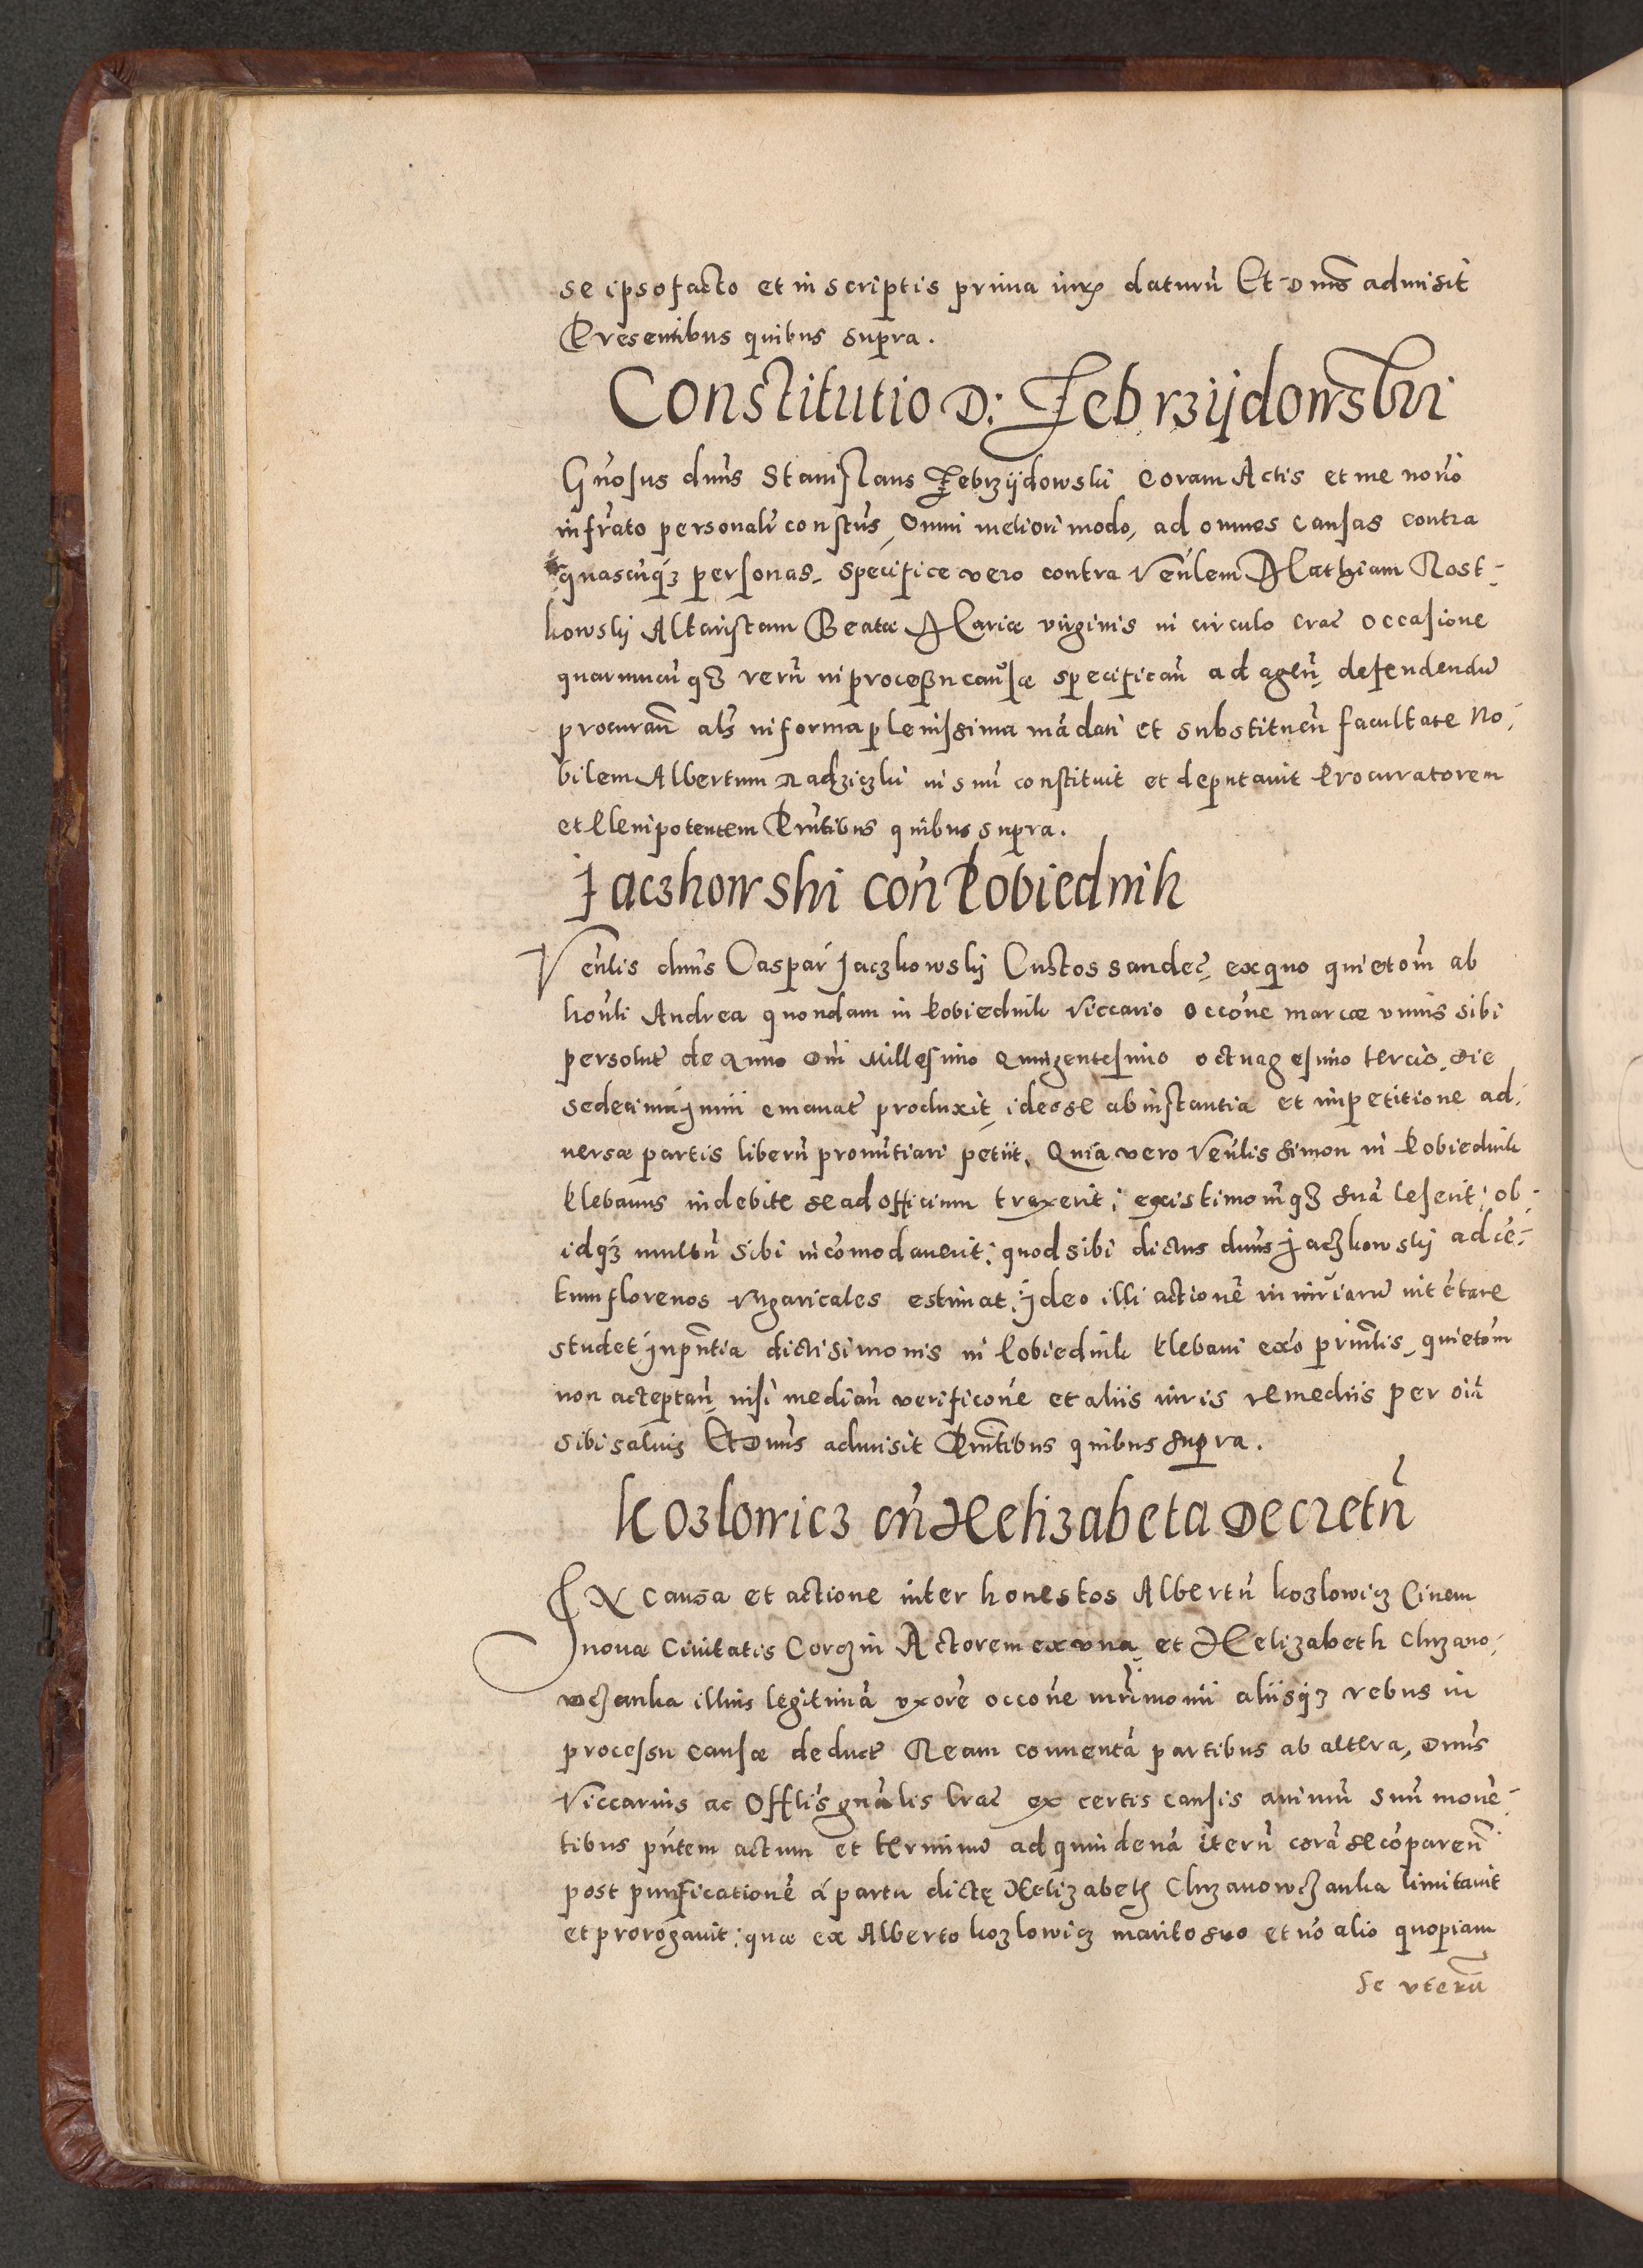 se ipso facto et in scriptis prima iurᷓ daturũ Et Dñs admisit
Presentibus quibus supra.
Constitutio D: Zebrzijdowski
Gñosus dñus Stanislaus Zebrzijdowski coram Actis et me norio
infrato personalr constus, Omni meliori modo, ad omnes causas contra
quascuqȝ personas, specifice vero contra Veñlem Mathiam Rost-
kowsky Altaristam Beatæ Mariæ virginis in circulo crac̃ occasione
quarumcũqȝ rerũ in processu causæ specificañ ad ageñ, defendendũ
procurañ als in forma plenissima mãdati et substitueñ facultate No-
bilem Albertum Radziczki in suũ constituit et deputauit Procuratorem
et Plenipotentem Pñtibus quibus supra.
Jaczkowski coñ Pobiednik
Veñlis dñus Caspar Jaczkowsky Custos sandec̃, ex quo quietom̃ ab
hoñli Andrea quondam in Pobiednik Viccario occõne marcæ vnius sibi
persolut̃ de Anno Dñi Millesimo Quingentesimo octuagesimo tercio, die
sedecima Junii emanat̃ produxit, ideo se ab instantia et impetitione ad-
uersæ partis liberũ pronũtiari petiit. Quia vero Veñlis Simon in Pobiednik
Plebanus indebite se ad officium traxerit; existimom̃qȝ suã leserit; ob-
idqȝ multũ sibi incõmodauerit; quod sibi dictus dñus Jaczkowsky ad cẽ-
tum florenos vngaricales estimat; Ideo illi actionẽ iniuriarũ intẽtare
studet Jn pñtia dicti Simonis in Pobiednik Plebani exõ priñtlis, quietom̃
non acceptañ, nisi mediañ verificõne et aliis iuris remediis per oĩa
sibi saluis Et Dñus admisit Pñtibus quibus supra.
Kozlowicz cñ Helizabeta Decretũ
Jn Causa et actione inter honestos Albertũ kozlowicz Ciuem
nouæ Ciuitatis Corczin Actorem ex vna, et Helizabeth Chrzano-
wczanka illius legitimã vxorẽ occõne mr̃imonii aliisqȝ rebus in
processu causæ deduct̃ Ream conuentã partibus ab altera, Dñus
Viccarius ac Offlis gñalis Crac̃ ex certis causis animũ suũ mouẽ-
tibus pñtem actum et terminũ ad quindenã iterũ corã se cõpareñ
post purificationẽ á partu dictę Helizabeth Chrzanowczanka limitauit
et prorogauit; quæ ex Alberto kozlowicz marito suo et nõ alio quopiam
se vterũ